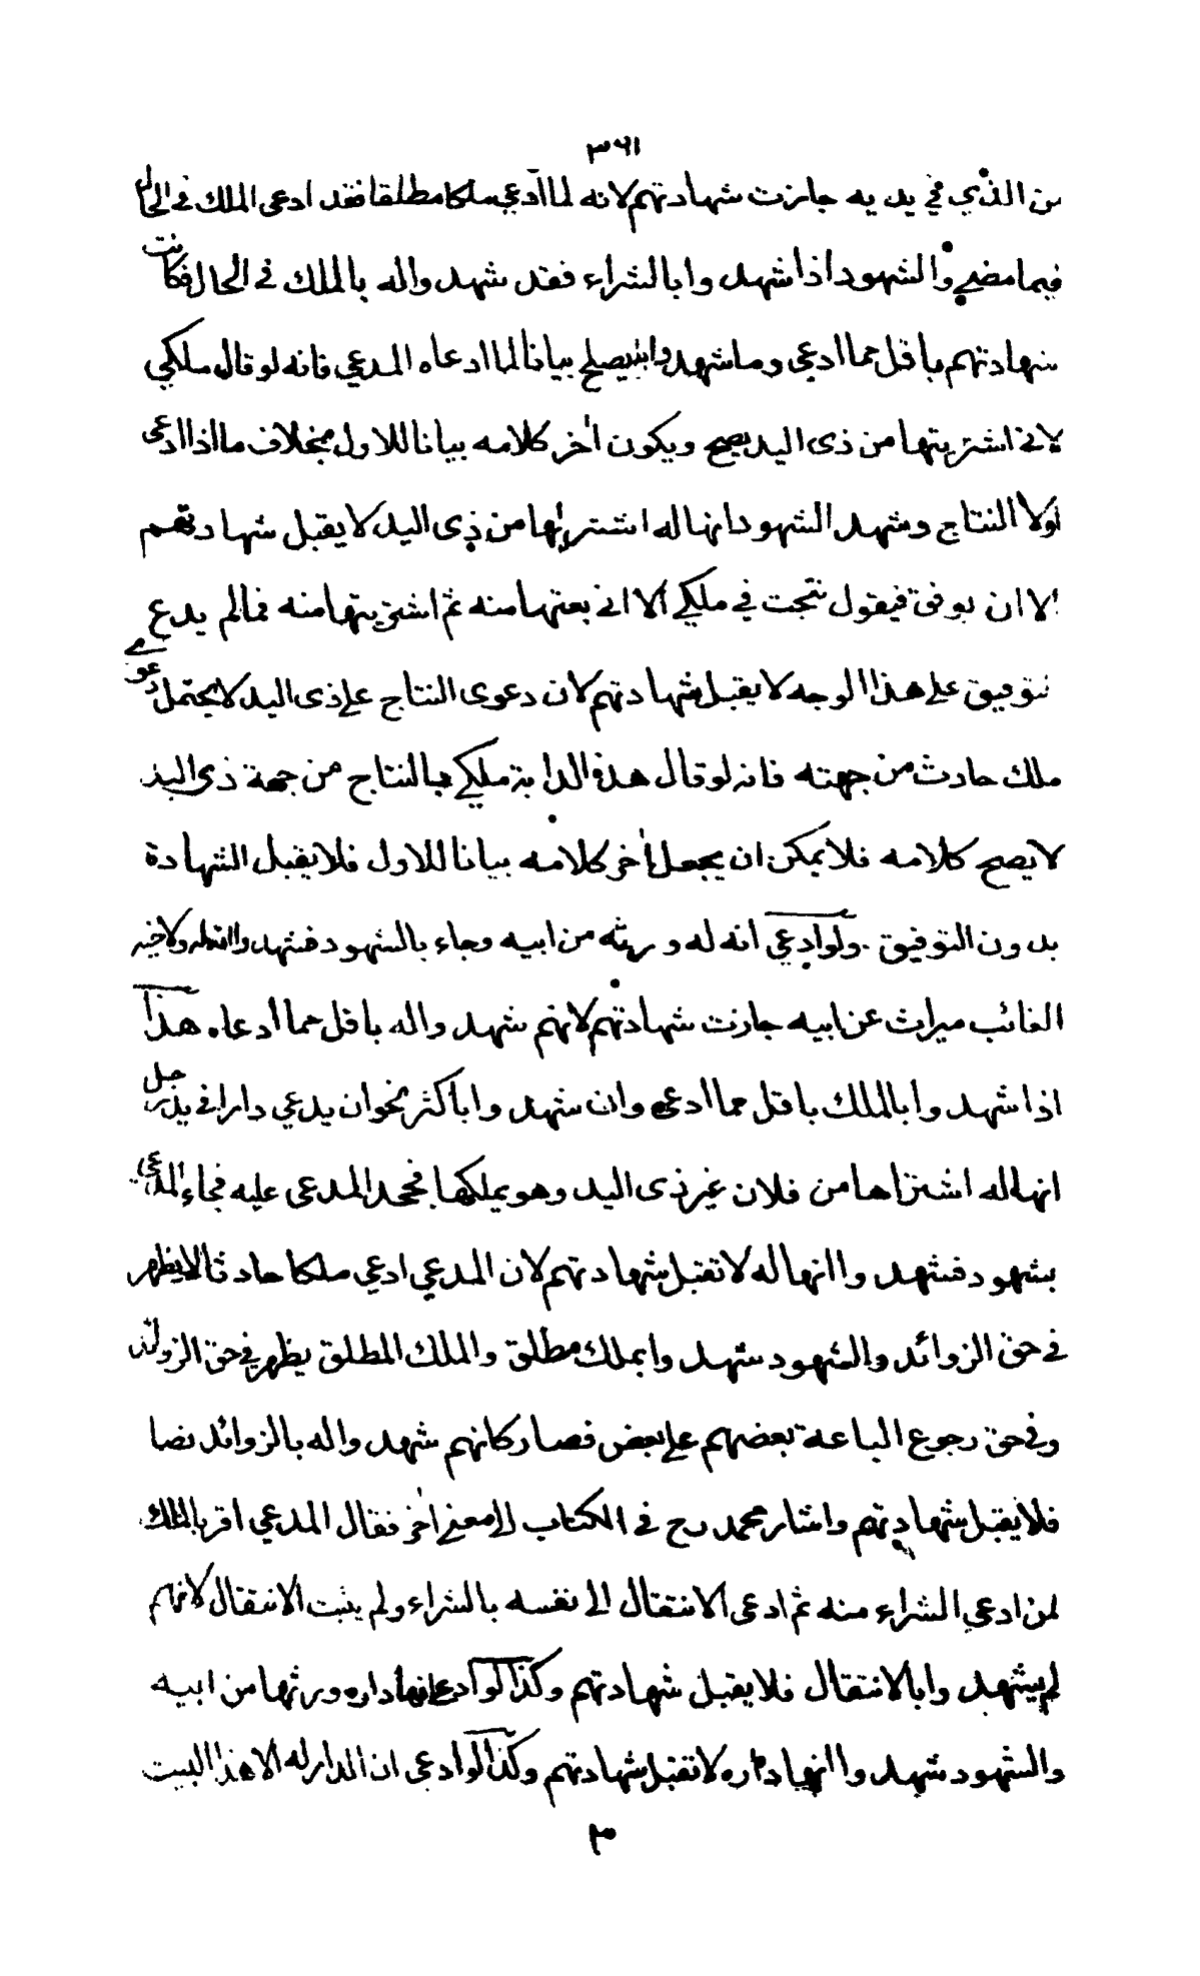 ٣٦١
من الذي في يديه جازت شهادتهم لانه لما ادعي ملكا مطلقا فقد ادعى الملك في الحال
فيما مضي والشهود اذا شهدوا بالشراء فقد شهدوا له بالملك في الحال فكانت
شهادتهم باقل مما ادعي وما شهدوا به يصلح بيانا لما ادعاه المدعي فانه لو قال ملكي
لاني اشتريتها من ذى اليد يصح ويكون اخر كلامه بيانا للاول بخلاف ما اذا ادعى
اولا النتاج وشهد الشهود انها له اشتراها من ذي اليد لا يقبل شهادتهم
الا ان يوفق فيقول نتجت في ملكي الا اني بعتها منه ثم اشتريتها منه فمالم يدع
توفيق على هذا الوجه لا يقبل شهادتهم لان دعوى النتاج على ذى اليد لا يحتمل دعوى
ملك حادث من جهته فانه لو قال هذه الدابة ملكي بالنتاج من جهة ذى اليد
لا يصح كلامه فلا يمكن ان يجعل اخر كلامه بيانا للاول فلا يقبل الشهادة
بدون التوفيق . ولو ادعي انه له ورثه من ابيه وجاء بالشهود فشهدوا انه له ولاخيه
الغائب ميراث عن ابيه جازت شهادتهم لانهم شهدوا له باقل مما ادعاه هذا
اذا شهدوا بالملك باقل مما ادعى وان شهدوا باكثر نحو ان يدعي دارا في يد رجل
انها له اشتراها من فلان غير ذى اليد وهو يملكها فجحد المدعى عليه فجاء المدعي
بشهود فشهدوا انها له لا تقبل شهادتهم لان المدعي ادعي ملكا حادثا لا يظهر
في حق الزوائد والشهود شهدوا بملك مطلق والملك المطلق يظهر في حق الزوائد
وفي حق رجوع الباعة بعضهم على بعض فصار كانهم شهدوا له بالزوائد نصا
فلا يقبل شهادتهم واشار محمد رح في الكتاب الى معني اخر فقال المدعي اقر بالملك
لمن ادعي الشراء منه ثم ادعى الانتقال الى نفسه بالشراء ولم يثبت الانتقال لانهم
لم يشهدوا بالانتقال فلا يقبل شهادتهم وكذا لو ادعى انها داره ورثها من ابيه
والشهود شهدوا انها داره لا تقبل شهادتهم وكذا لو ادعى ان الدار له الا هذا البيت